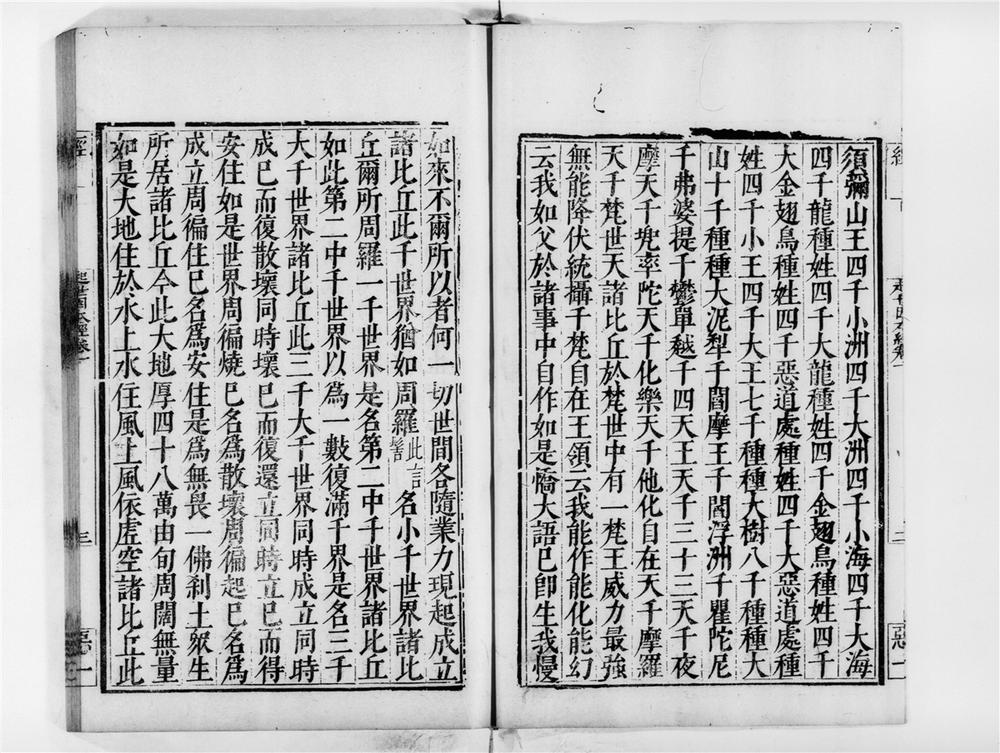 須彌山王四千小洲四千大洲四千小海四千大海
四千龍種姓四千大龍種姓四千金翅鳥種姓四千
大金翅鳥種姓四千惡道處種姓四千大惡道處種
姓四千小王四千大王七千種種大樹八千種種大
山十千種種大泥犁千閻摩王千閻浮洲千瞿陀尼
千弗婆提千鬱單越千四天王天千三十三天千夜
摩天千兜率陀天千化樂天千他化自在天千摩羅
天千梵世天諸比丘於梵世中有一梵王威力最強
無能降伏統攝千梵自在王領云我能作能化能幻
云我如父於諸事中自作如是憍大語已卽生我慢
如來不爾所以者何一切世間各隨業力現起成立
諸比丘此千世界猶如周羅此言髻名小千世界諸比
丘爾所周羅一千世界是名第二中千世界諸比丘
如此第二中千世界以爲一數復滿千界是名三千
大千世界諸比丘此三千大千世界同時成立同時
成已而復散壞同時壞已而復還立同時立已而得
安住如是世界周徧燒已名爲散壞周徧起已名爲
成立周徧住已名爲安住是爲無畏一佛刹土衆生
所居諸比丘今此大地厚四十八萬由旬周闊無量
如是大地住於水上水住風上風依虛空諸比丘此
經
起世因本經卷一
三
惡一